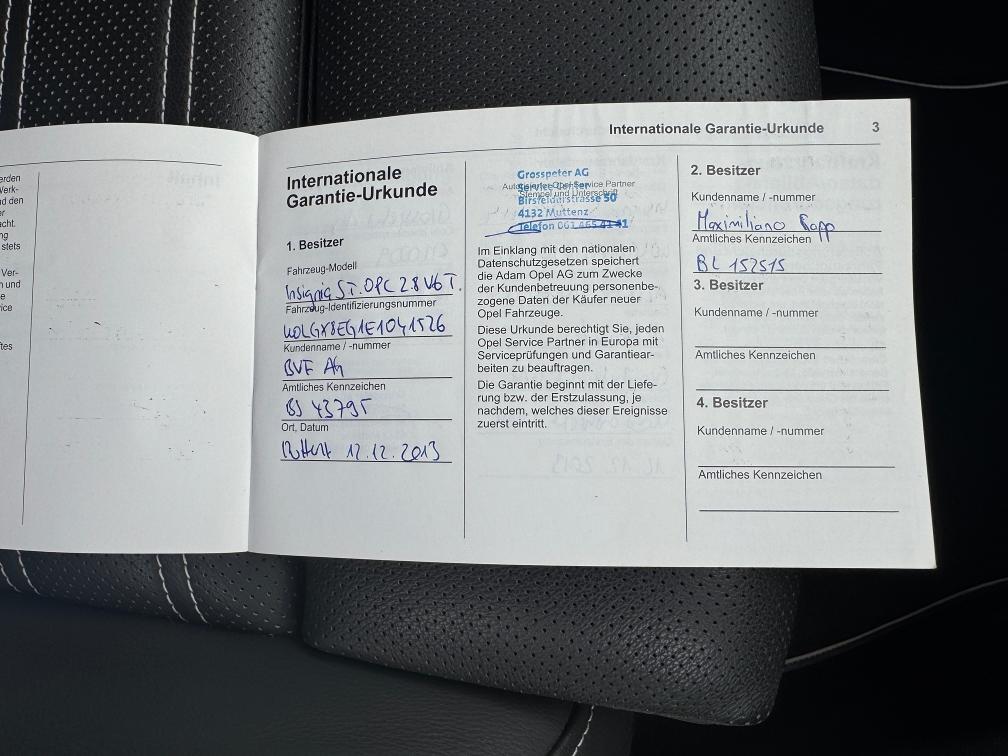 Internationale Garantie-Urkunde 3
erden
Verk-
d den
r
acht.
ng
stets
Ver-
n und
e
ice
tes
Internationale
Garantie-Urkunde
1. Besitzer
Fahrzeug-Modell
Insignia ST. OPC 2.8 V6 T.
Fahrzeug-Identifizierungsnummer
W0LGX8EG1E1041526
Kundenname / -nummer
BVF AG
Amtliches Kennzeichen
BS 43795
Ort, Datum
12.12.2013
Grosspeter AG
Service Center
Autorisierter Opel Service Partner
Stempel und Unterschrift
Birsfelderstrasse 50
4132 Muttenz
Telefon 061 465 41 41
Im Einklang mit den nationalen
Datenschutzgesetzen speichert
die Adam Opel AG zum Zwecke
der Kundenbetreuung personenbe-
zogene Daten der Käufer neuer
Opel Fahrzeuge.
Diese Urkunde berechtigt Sie, jeden
Opel Service Partner in Europa mit
Serviceprüfungen und Garantiear-
beiten zu beauftragen.
Die Garantie beginnt mit der Liefe-
rung bzw. der Erstzulassung, je
nachdem, welches dieser Ereignisse
zuerst eintritt.
2. Besitzer
Kundenname / -nummer
Maximiliano Rapp
Amtliches Kennzeichen
BL 152515
3. Besitzer
Kundenname / -nummer
Amtliches Kennzeichen
4. Besitzer
Kundenname / -nummer
Amtliches Kennzeichen